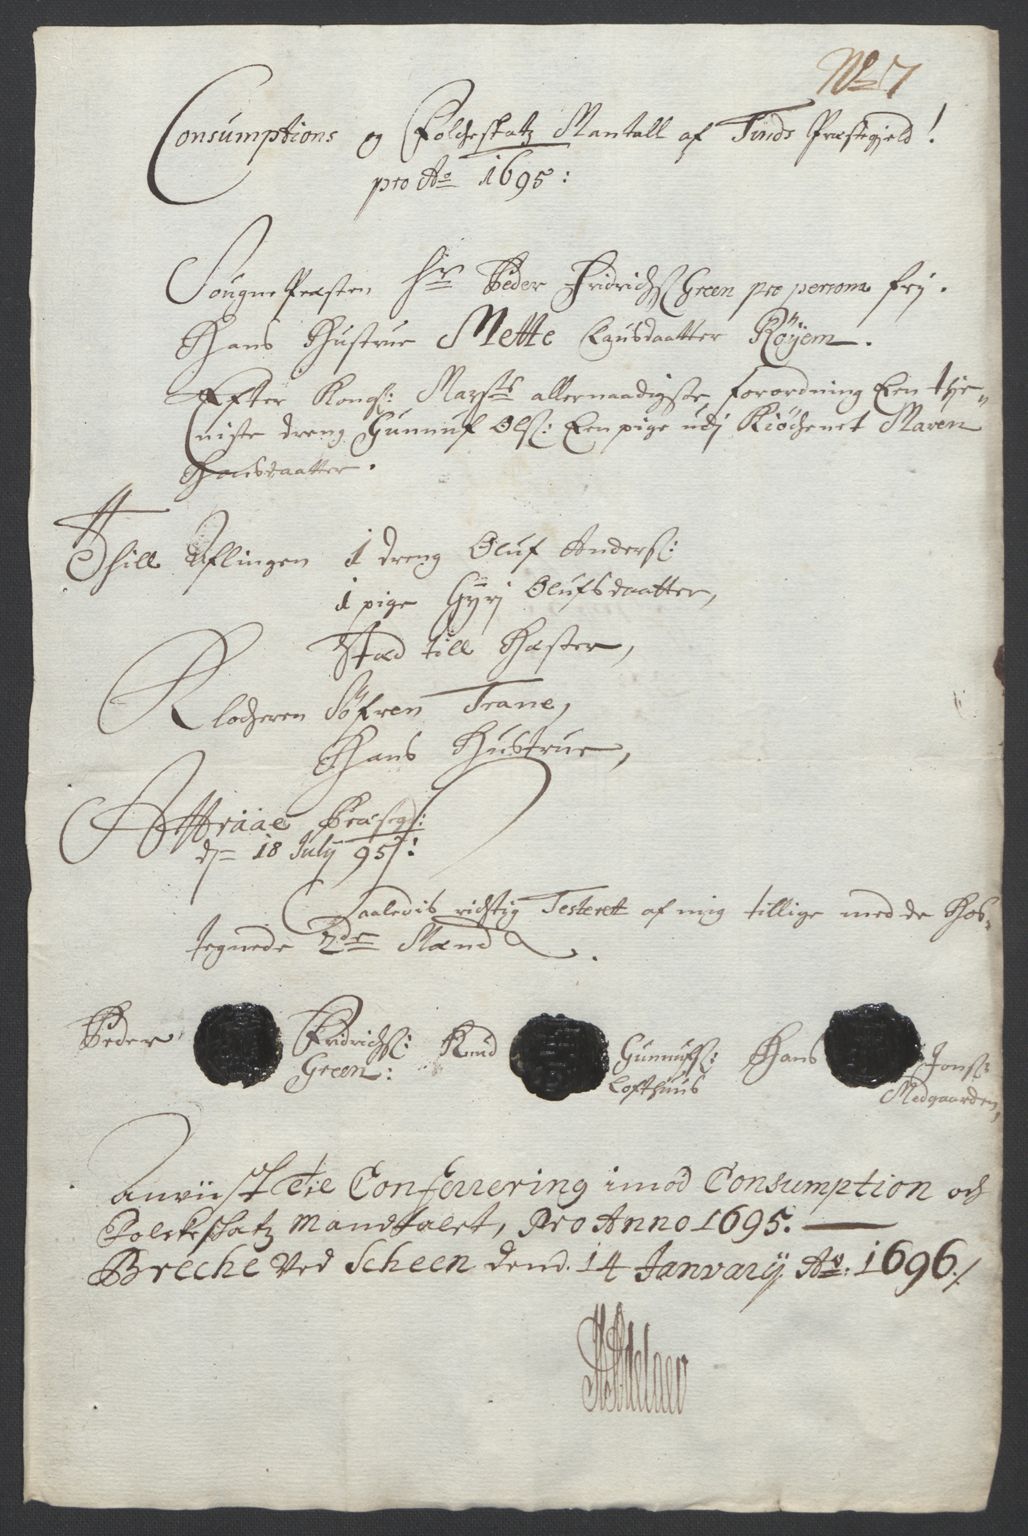 No 7
Consumptions og Folcheskatz Mantall af Tinds Præstegield!
pro Ao 1695:
Sougne Præsten Hr Peder Fridrichs: Green pro persona frj.
Hans Hustrue Mette Lausdaatter Røyem.
Efter Kongl: Mayts allernaadigste forordning Een thie-
niste dreng Gunnuf Ols: Een pige udj Kiøchenet Maren
Hansdaatter.
Thill Aflingen 1 dreng Oluf Anders:
1 pige Gyrj Olufsdaatter,
Stæd till Hæster,
Klocheren Søfren Trane,
Hans Hustrue,
Attraae Præstegl:
dn 18 July 95!
Saaledis richtig Testeret af mig tillige med de Hos-
tegnede 2de Mænd.
Peder Fridrichs: Knud Gunnufs: Hans Jons:
Green: Lofthuus Medgaarden,
Anviist Til Conferrering imod Consumption och
Folckeschatz Mandtalet, Pro Anno 1695.
Breche Ved Scheen dend. 14 January Ao. 1696./
Adelaer